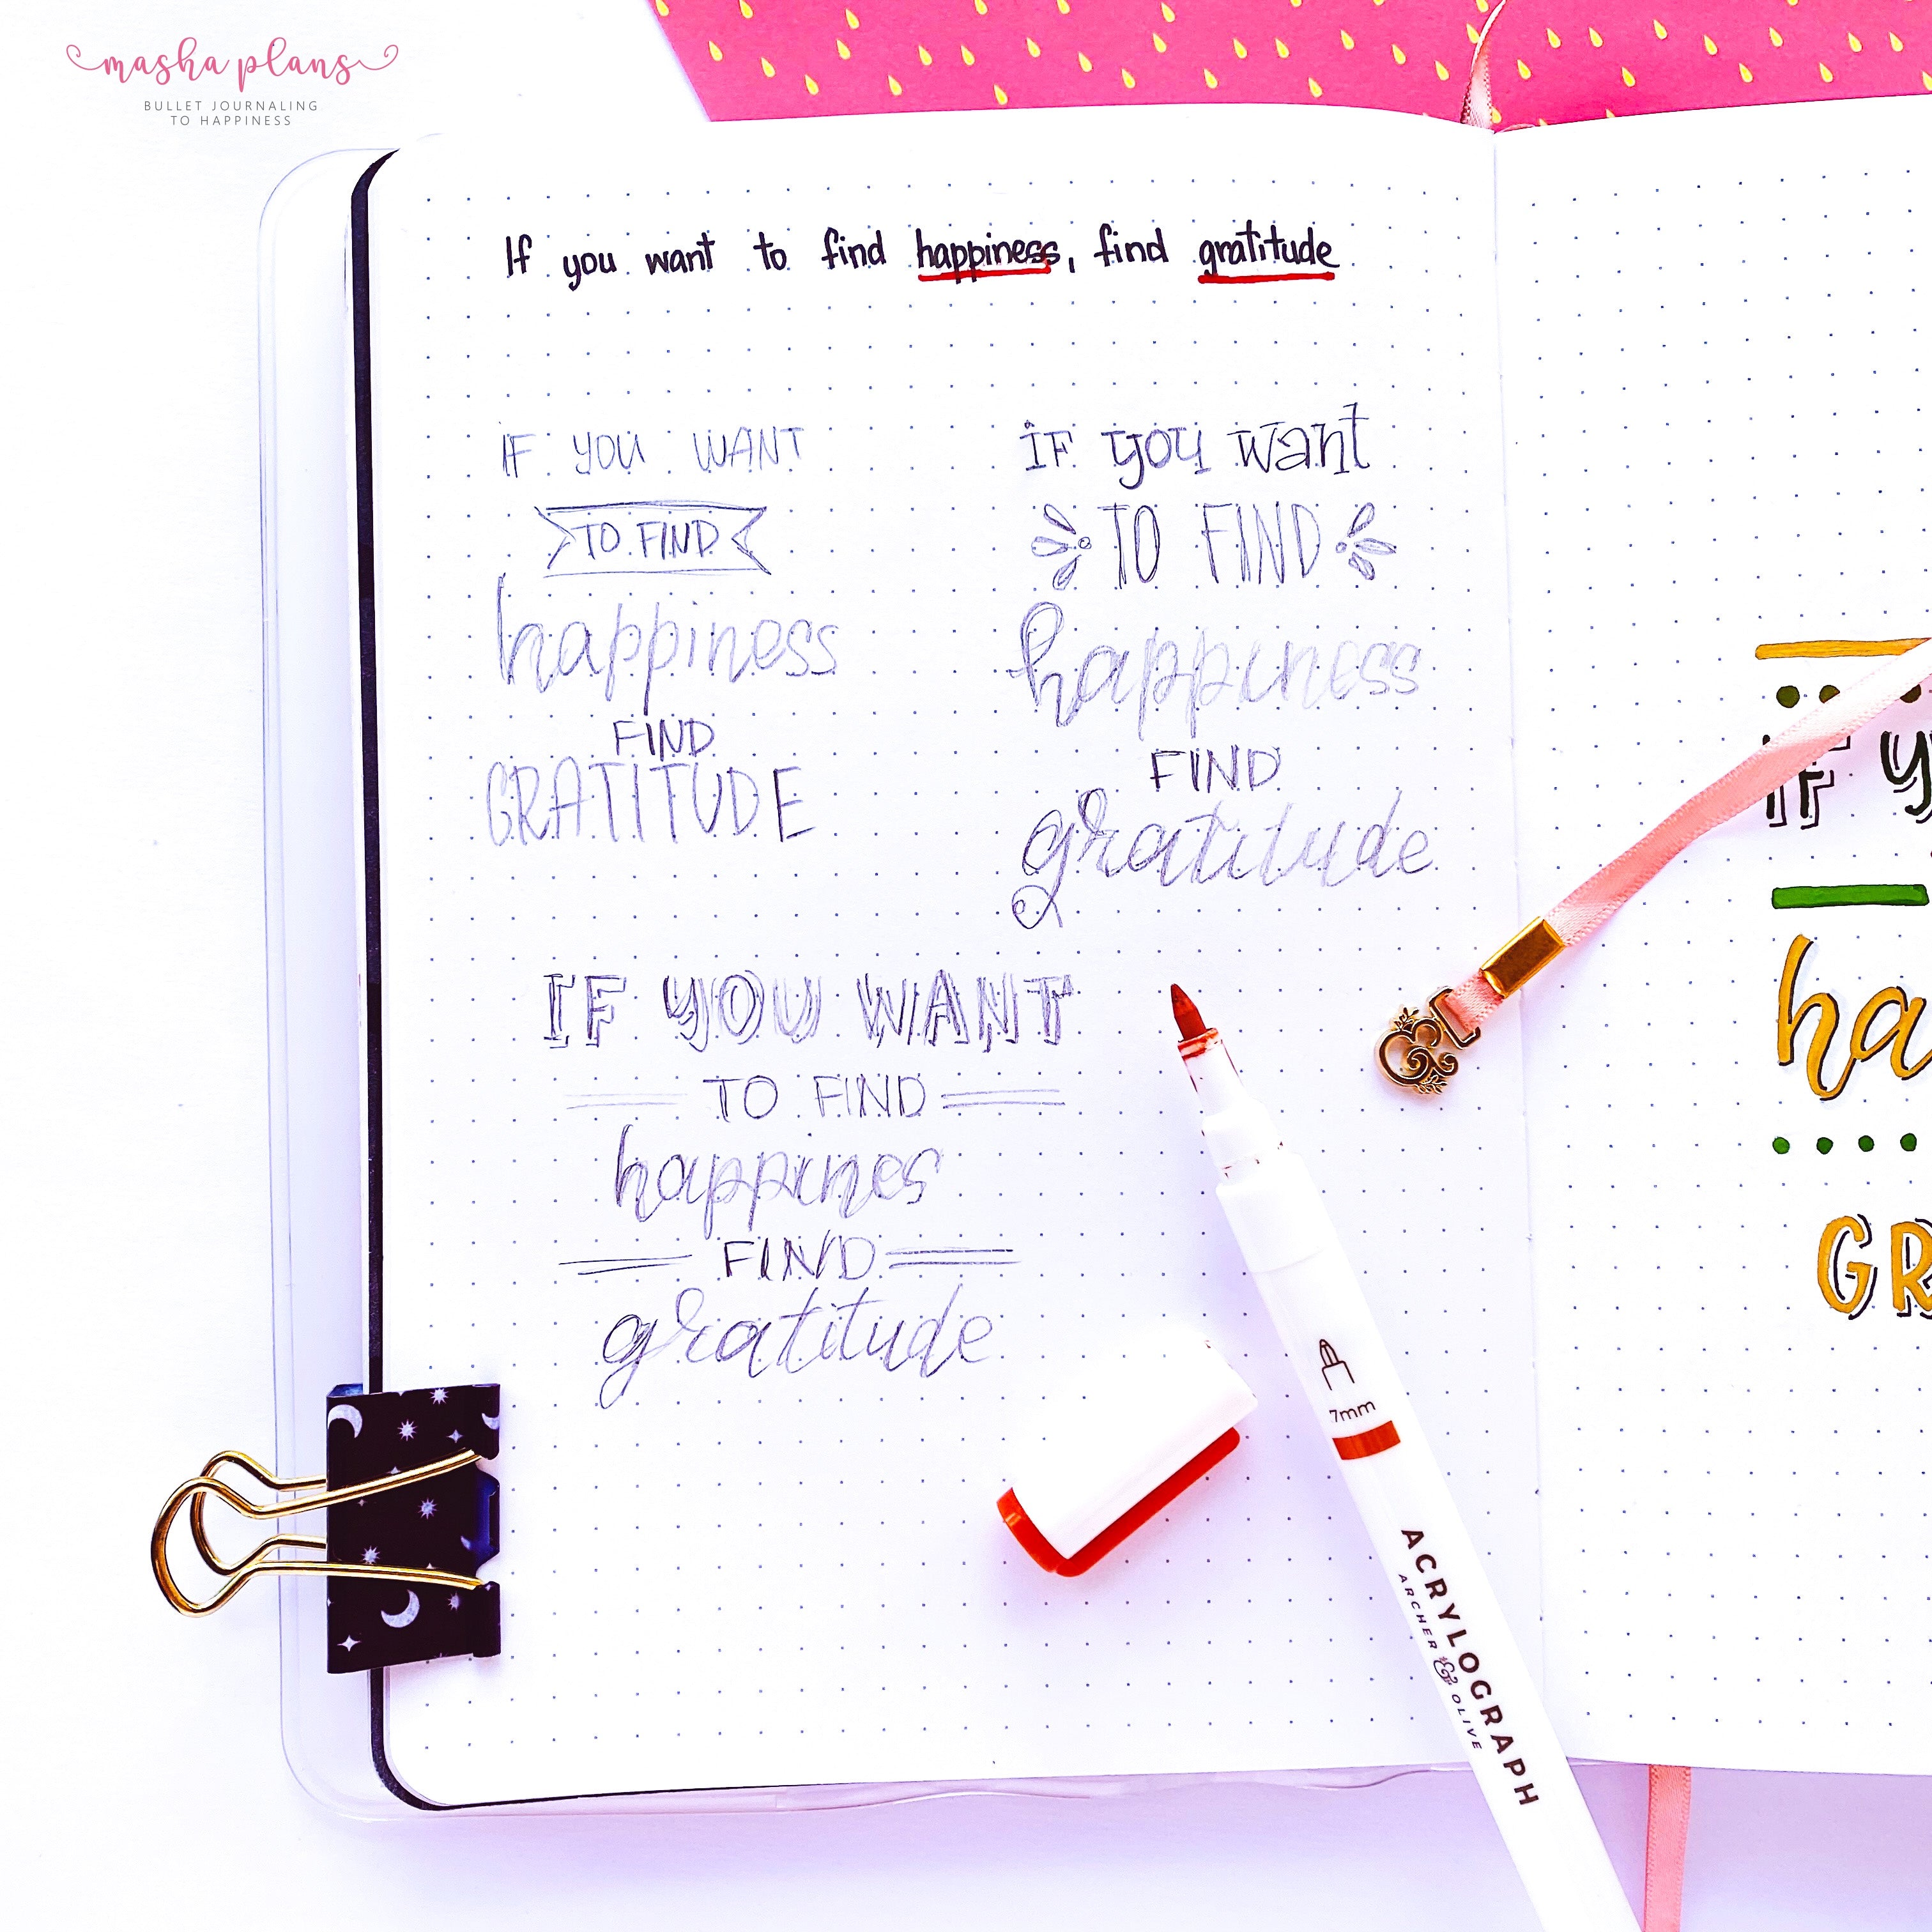 masha plans
BULLET JOURNALING
TO HAPPINESS
If you want to find happiness, find gratitude
IF YOU WANT
TO FIND
happiness
FIND
GRATITUDE
IF you want
TO FIND
happiness
FIND
gratitude
IF YOU WANT
TO FIND
happines
FIND
gratitude
7mm
ACRYLOGRAPH
ARCHER & OLIVE
IF y
ha
GR